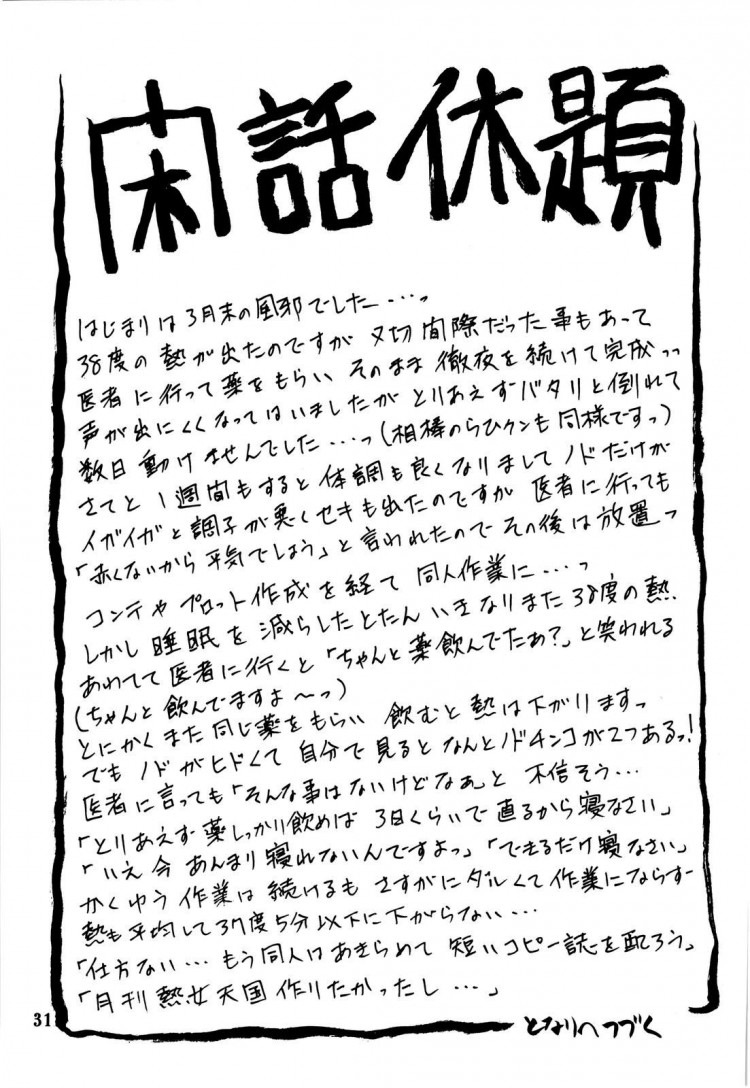 閑話休題
はじまりは3月末の風邪でした…っ
38度の熱が出たのですが 〆切間際だった事もあって
医者に行って薬をもらい そのまま徹夜を続けて完成っっ
声が出にくくなってはいましたが とりあえずバタリと倒れて
数日動けませんでした…っ(相棒のらひクンも同様ですっ)
さてと 1週間もすると 体調も良くなりまして ノドだけが
イガイガと調子が悪くセキも出たのですが 医者に行っても
「赤くないから平気でしょう」と言われたので その後は放置っ
コンテや プロット作成を経て 同人作業に…っ
しかし 睡眠を減らしたとたん いきなりまた38度の熱
あわてて医者に行くと「ちゃんと薬飲んでたぁ?」と笑われる
(ちゃんと飲んでますよ〜っ)
とにかくまた同じ薬をもらい 飲むと熱は下がりますっ
でも ノドがヒドくて 自分で見るとなんとノドチンコが2つあるっ!
医者に言っても「そんな事はないけどなぁ」と 不信そう…
「とりあえず薬しっかり飲めば 3日くらいで直るから寝なさい」
「いえ今 あんまり寝れないんですよっ」「できるだけ寝なさい」
かくゆう作業は続けるも さすがにダルくて作業にならず
熱も平均して37度5分以下に下がらない…
「仕方ない…もう同人はあきらめて 短いコピー誌を配ろう」
「月刊熱女天国作りたかったし…」
となりへつづく
31